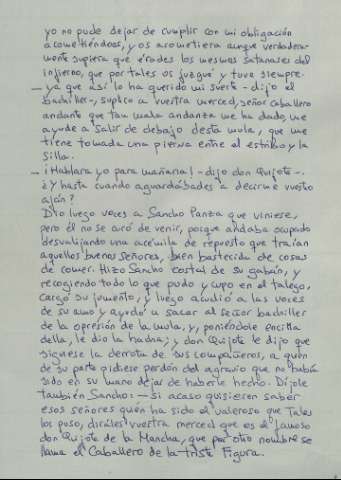 yo no pude dejar de cumplir con mi obligación
acometiéndoos, y os acometiera aunque verdadera-
mente supiera que érades los mesmos satanases del
infierno, que por tales os juzgué y tuve siempre.
— ya que así lo ha querido mi suerte - dijo el
bachiller -, suplico a vuestra merced, señor caballero
andante que tan mala andanza me ha dado, me
ayude a salir de debajo desta mula, que me
tiene tomada una pierna entre el estribo y la
silla.
— ¡Hablara yo para mañana! - dijo don Quijote -.
¿Y hasta cuándo aguardábades a decirme vuestro
afán?
Dio luego voces a Sancho Panza que viniese,
pero él no se curó de venir, porque andaba ocupado
desvalijando una acémila de repuesto que traían
aquellos buenos señores, bien bastecida de cosas
de comer. Hizo Sancho costal de su gabán, y
recogiendo todo lo que pudo y cupo en el talego,
cargó su jumento, y luego acudió a las voces
de su amo y ayudó a sacar al señor bachiller
de la opresión de la mula, y, poniéndole encima
della, le dio la hacha; y don Quijote le dijo que
siguiese la derrota de sus compañeros, a quien
de su parte pidiese perdón del agravio que no había
sido en su mano dejar de haberle hecho. Díjole
también Sancho: - si acaso quisieren saber
esos señores quién ha sido el valeroso que tales
los puso, diráles vuestra merced que es el famoso
don Quijote de la Mancha, que por otro nombre se
llama el Caballero de la Triste Figura.